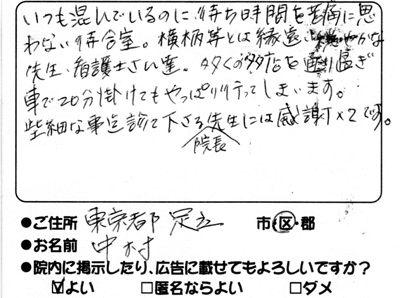 いつも混んでいるのに、待ち時間を苦痛に思
わない待合室。横柄等とは縁遠い かな
先生、看護士さん達。多くの 店を 通り過ぎ
車で20分掛けてもやっぱり行ってしまいます。
些細な事迄診て下さる院長先生には感謝×2です。
●ご住所 東京都 足立 市・区・郡
●お名前 中村
●院内に掲示したり、広告に載せてもよろしいですか?
☑よい □匿名ならよい □ダメ